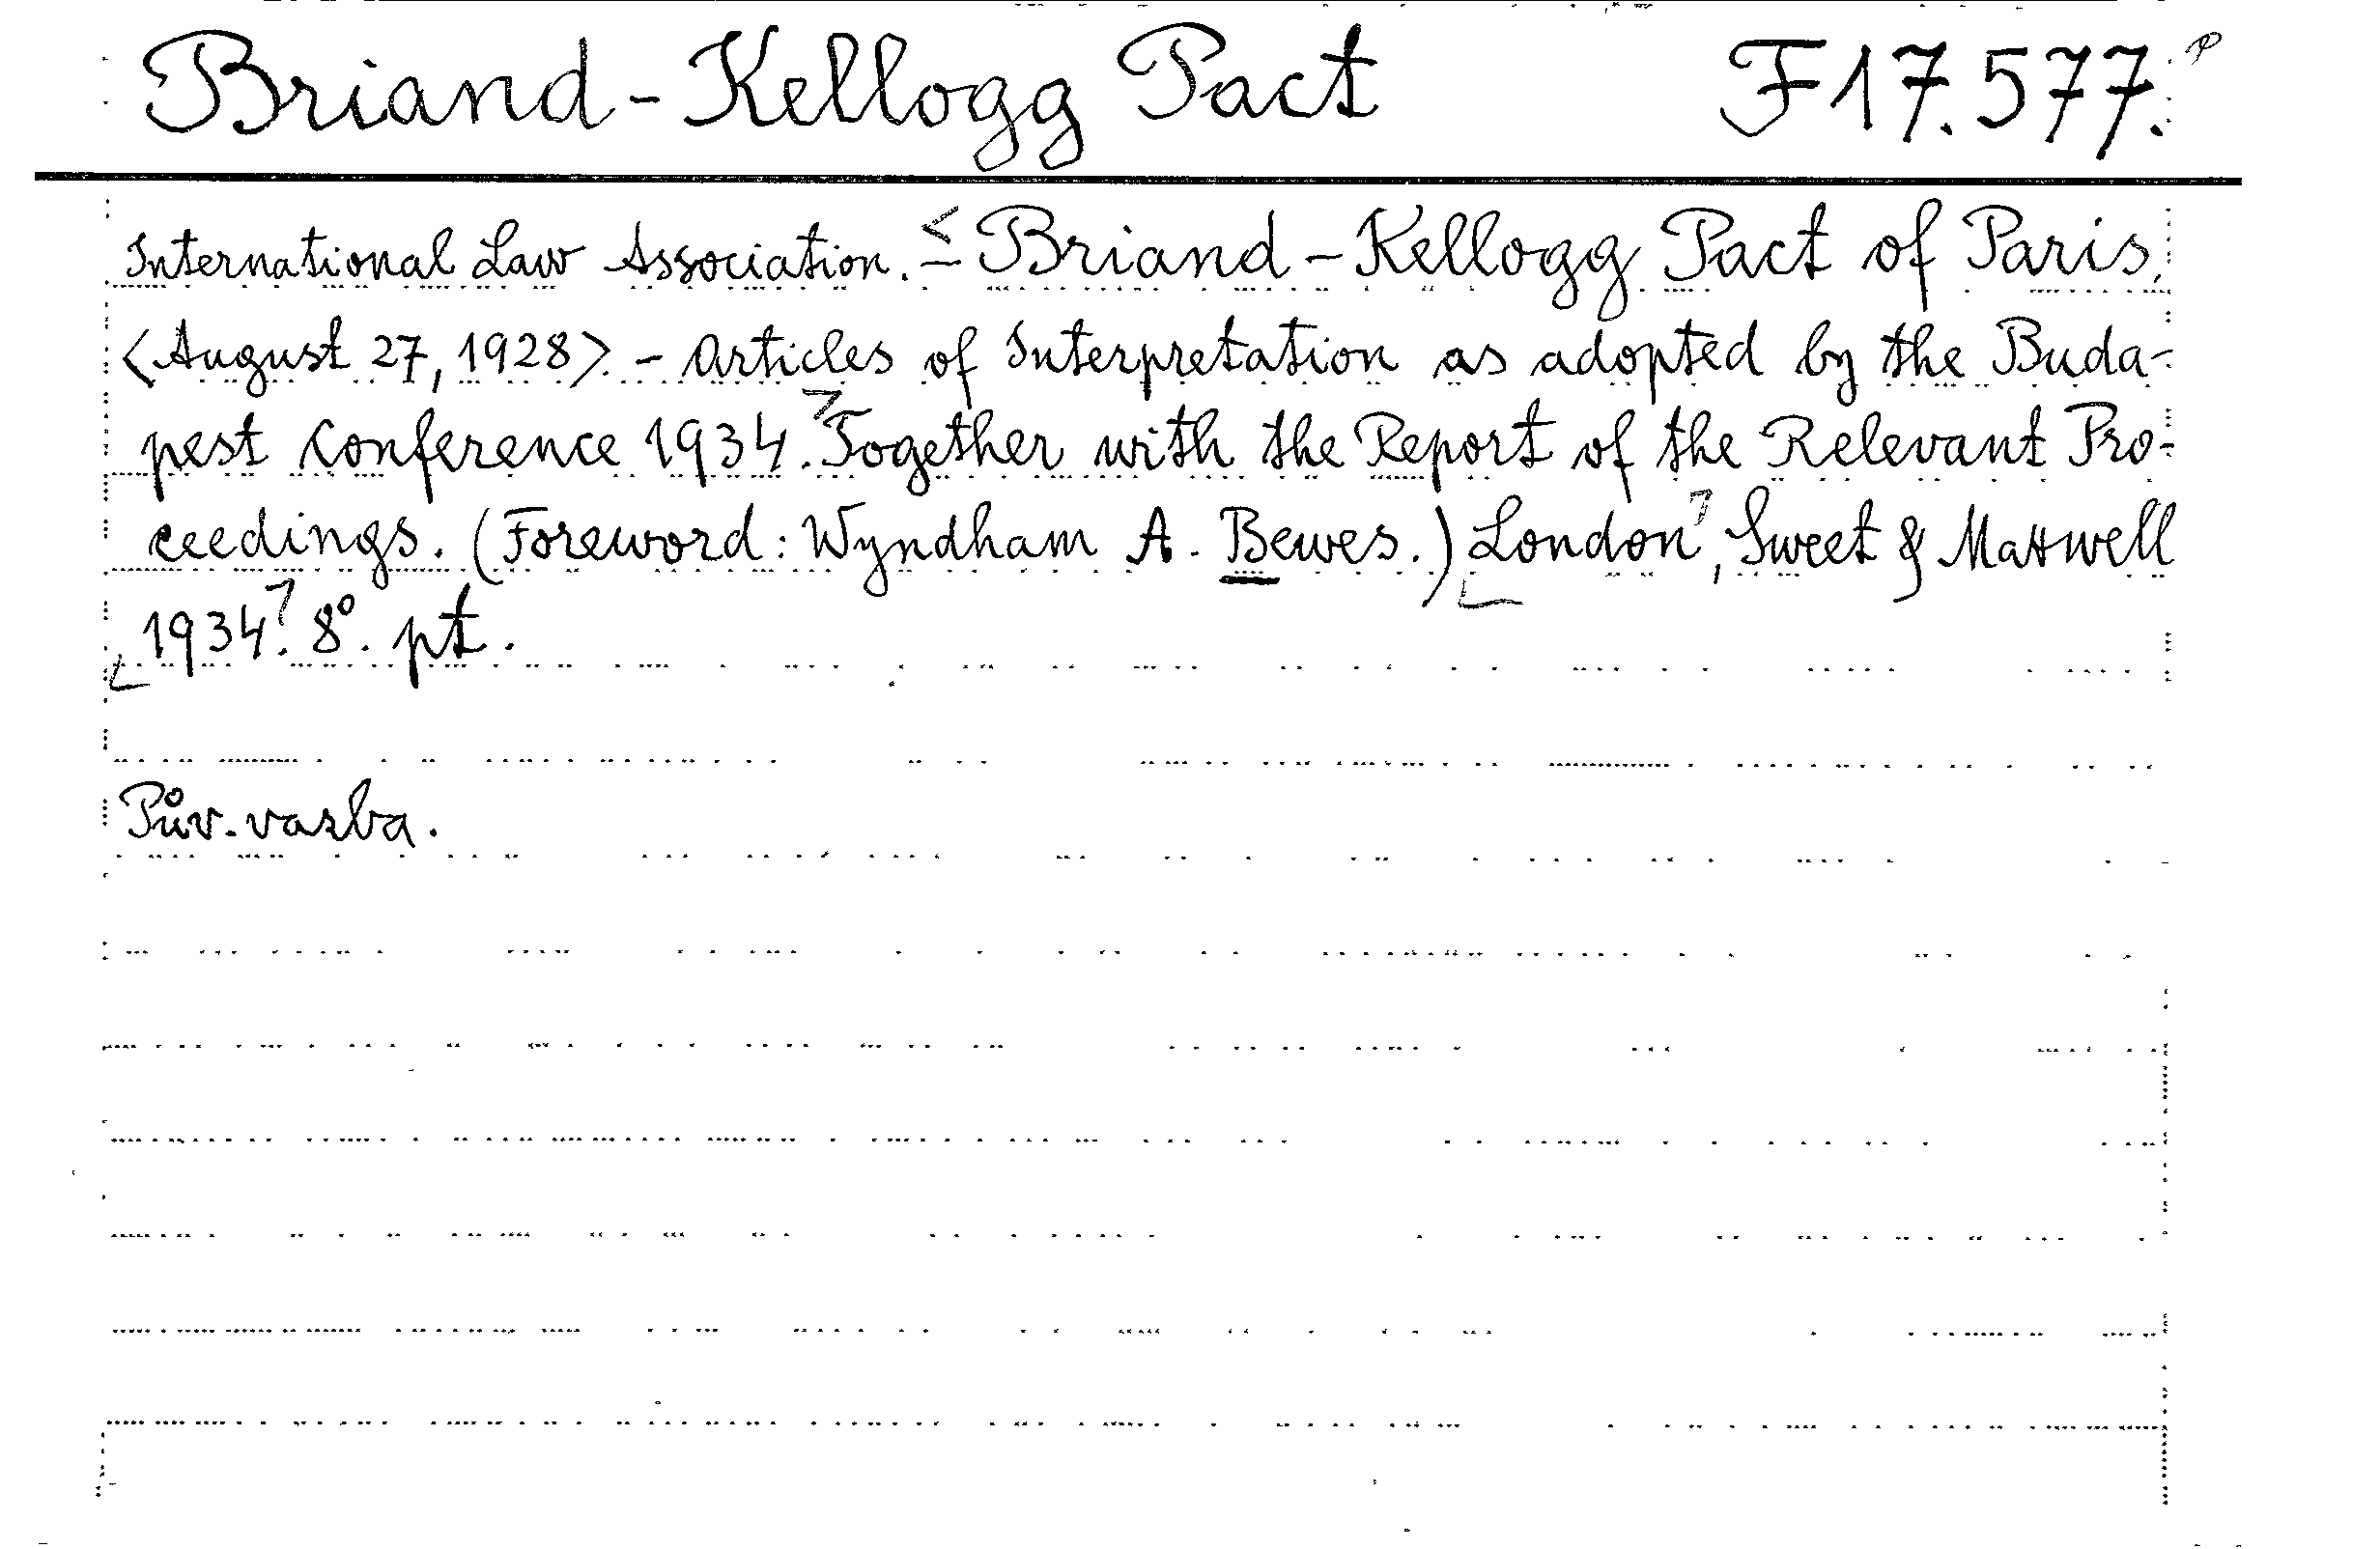 Briand-Kellogg Pact F 17.577.
International Law Association. - Briand-Kellogg Pact of Paris,
<August 27, 1928>. - Articles of Interpretation as adopted by the Buda-
pest Conference 1934. Together with the Report of the Relevant Pro-
ceedings. (Foreword: Wyndham A. Bewes.) London, Sweet & Maxwell
1934. 8°. pt.
Pův. vazba.